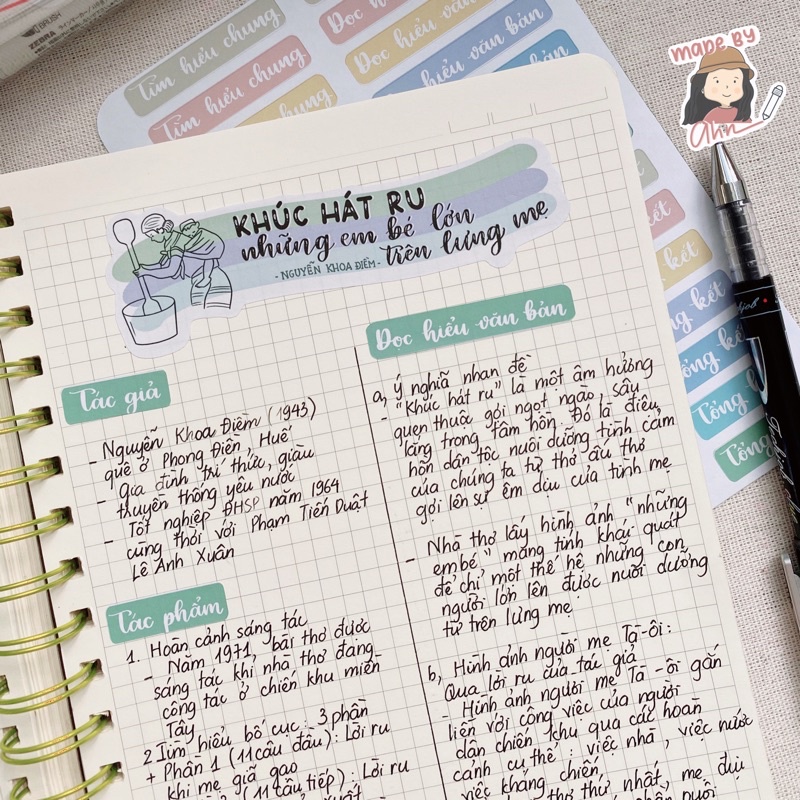 BRUSH
ZEBRA
Tìm hiểu chung
Tìm hiểu chung
Đọc hiểu văn bản
hiểu văn bản
made by
ahn
KHÚC HÁT RU
những em bé lớn
trên lưng mẹ
- NGUYỄN KHOA ĐIỀM -
Tác giả
- Nguyễn Khoa Điềm (1943)
quê ở Phong Điền, Huế
- Gia đình trí thức, giàu
truyền thống yêu nước
- Tốt nghiệp ĐHSP năm 1964
cùng thời với Phạm Tiến Duật
Lê Anh Xuân
Tác phẩm
1. Hoàn cảnh sáng tác
- Năm 1971, bài thơ được
sáng tác khi nhà thơ đang
công tác ở chiến khu miền
Tây
2 Tìm hiểu bố cục: 3 phần
+ Phần 1 (11 câu đầu): Lời ru
khi mẹ giã gạo
(11 câu tiếp): Lời ru
Đọc hiểu văn bản
a, Ý nghĩa nhan đề
- "Khúc hát ru" là một âm hưởng
quen thuộc gợi ngọt ngào, sâu
lắng trong tâm hồn. Đó là điệu
hồn dân tộc nuôi dưỡng tình cảm
của chúng ta từ thở ấu thơ
gợi lên sự êm dịu của tình mẹ
- Nhà thơ lấy hình ảnh "những
em bé" mang tính khái quát
để chỉ một thế hệ những con
người lớn lên được nuôi dưỡng
từ trên lưng mẹ.
b, Hình ảnh người mẹ Tà-ôi:
Qua lời ru của tác giả
- Hình ảnh người mẹ Tà-ôi gắn
liền với công việc của người
dân chiến khu qua các hoàn
cảnh cụ thể: việc nhà, việc nước
việc kháng chiến,
thơ thứ nhất, mẹ địu
kết
kết
Tổng kết
Tổng kết
Tổng
Tổng